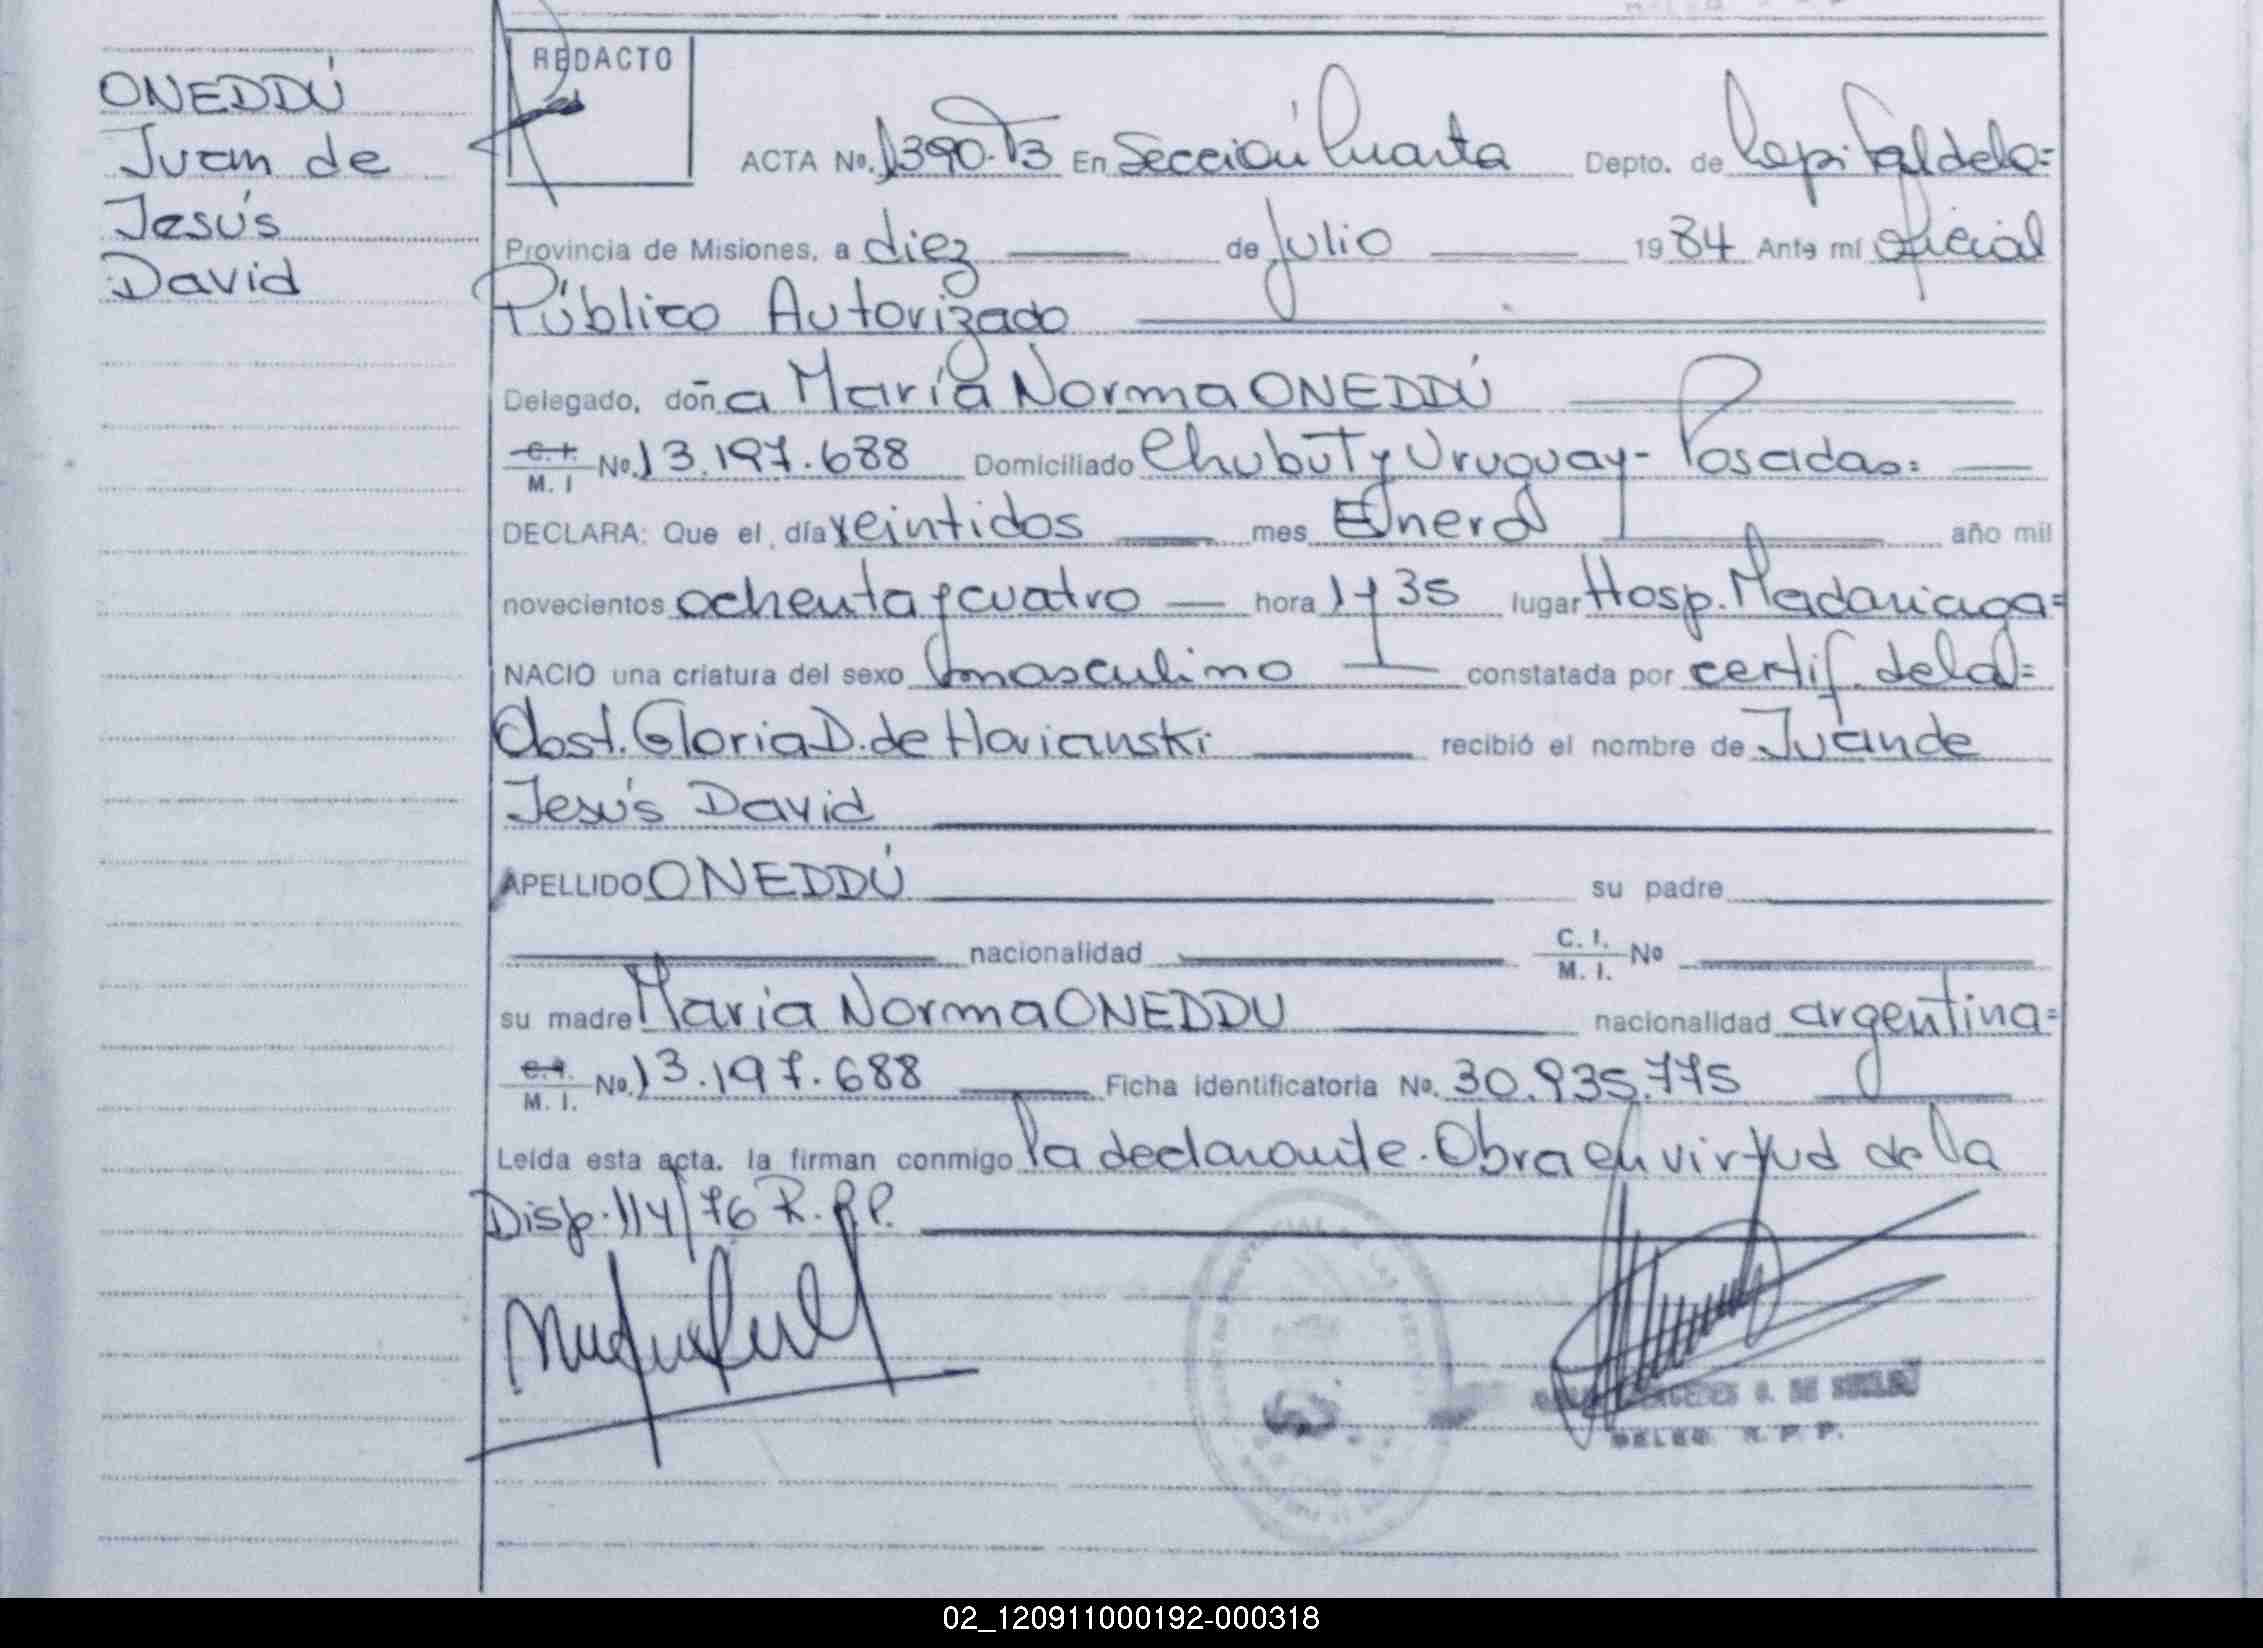 ONEDDÚ
Juan de
Jesús
David
REDACTO
ACTA No. 1390-T3 En Sección Cuarta Depto. de Capital de la=
Provincia de Misiones, a diez de Julio 1984 Ante mí oficial
Público Autorizado
Delegado, doña María Norma ONEDDÚ
C. I. M. I No. 13.197.688 Domiciliado Chubut y Uruguay- Posadas=
DECLARA: Que el día veintidos mes Enero año mil
novecientos ochenta y cuatro hora 1y35 lugar Hosp. Madariaga=
NACIO una criatura del sexo masculino constatada por certif. de la=
Obst. Gloria D. de recibió el nombre de Juan de
Jesús David
APELLIDO ONEDDÚ su padre
nacionalidad C. I. M. I. No
su madre Maria Norma ONEDDU nacionalidad argentina=
C. I. M. I. No. 13.197.688 Ficha identificatoria No. 30.935.775
Leída esta acta. la firman conmigo la declarante. Obra en virtud de la
Disp. 114/76 R.P.P.
DE
DELEG. R. P. P.
02_120911000192-000318